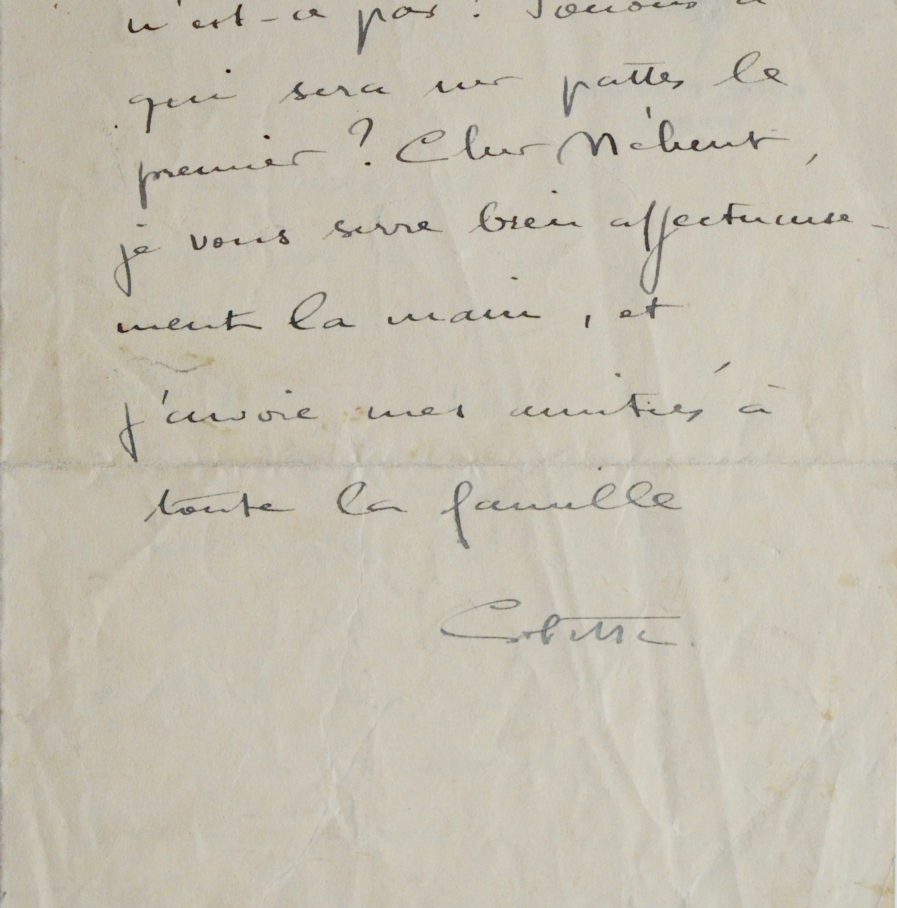 n'est-ce pas ? Jouons à
qui sera sur pattes le
premier ? Cher Néhent,
je vous serre bien affectueuse-
ment la main, et
j'envoie mes amitiés à
toute la famille
Colette.